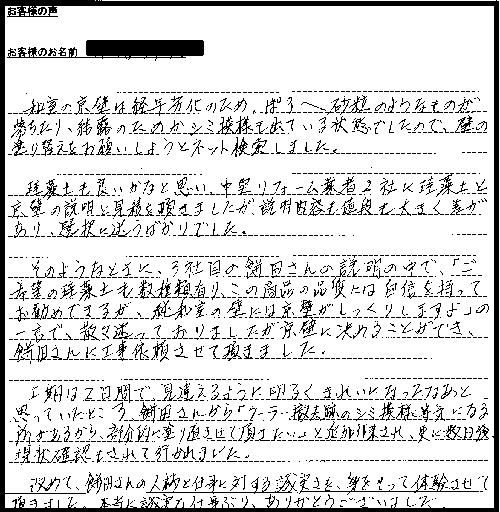 お客様の声
お客様のお名前
和室の京壁は経年劣化のため、ぽろへ、砂粒のようなものが
落ちたり、結露のためかシミ模様も出ている状態でしたので、壁の
塗り替えをお願いしようとネット検索しました。
珪藻土も良いかなと思い、中堅リフォーム業者2社に珪藻土と
京壁の説明と見積を頂きましたが説明内容も値段も大きく差が
あり、選択に迷うばかりでした。
そのようなときに、3社目の餅田さんの説明の中で、「ご
希望の珪藻土も数種類有り、この商品の品質には自信を持って
お勧めできるが、純和室の壁には京壁がしっくりしますよ」の
一言で、散々迷っておりましたが京壁に決めることができ、
餅田さんに工事依頼させて頂きました。
工期は2日間で、見違えるように明るくきれいになったなあと
思っていたところ、餅田さんから「クーラー撤去跡のシミ模様が気になる
所があるから、部分的に塗り直させて頂きたい」と追加作業され、更に数日後
現状確認もされて行かれました。
改めて、餅田さんの人柄と仕事に対する誠実さを、身をもって体験させて
頂きました。本当に誠実な仕事ぶり、ありがとうございました。